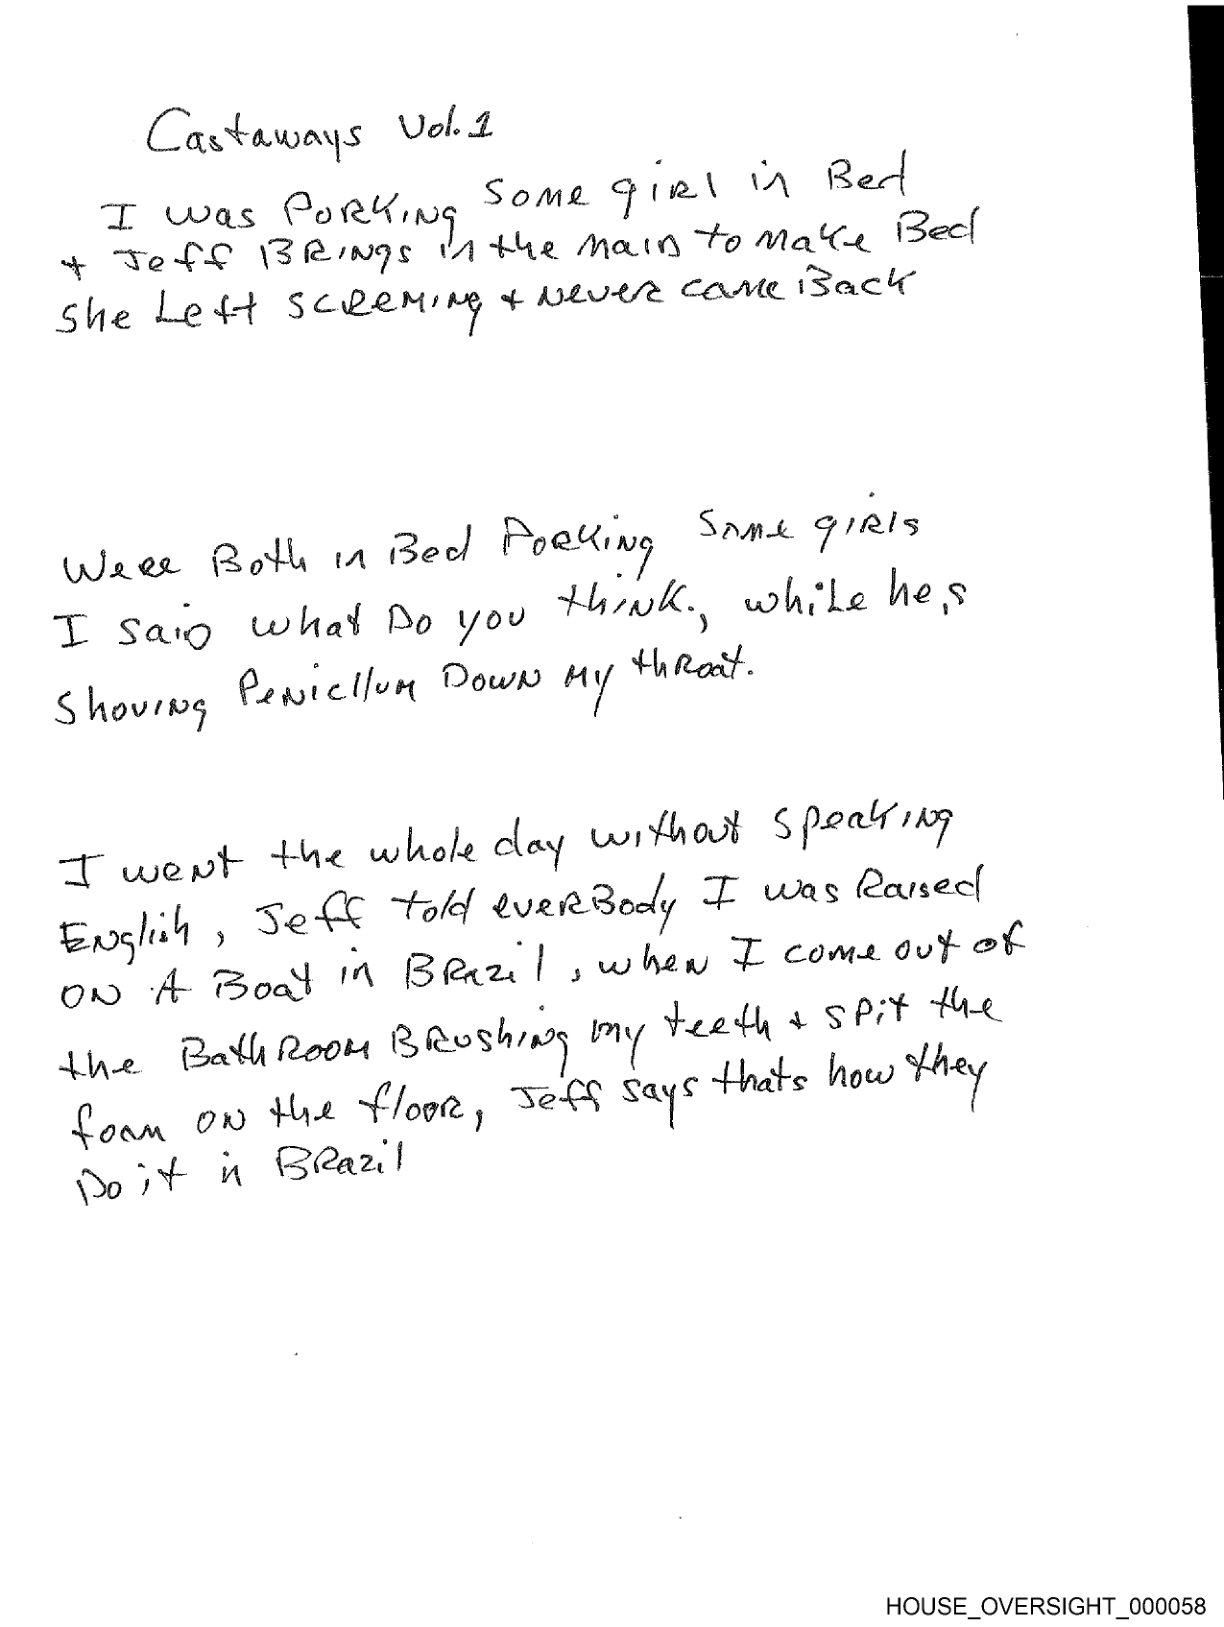 Castaways Vol. 1
I was PORKING Some giRl in Bed
+ Jeff BRINgs in the maid to make Bed
She Left SCREMING + NEVER came Back
Were Both in Bed PORKING Some giRls
I SaiD what Do you think., while he,s
Shoving Penicllum Down My throat.
I went the whole day without speaking
English, Jeff told everBody I was Raised
ON A Boat in BRazil, when I come out of
the BathROOM BRushing my teeth + spit the
foam ON the flooR, Jeff says thats how they
Do it in BRazil
HOUSE_OVERSIGHT_000058